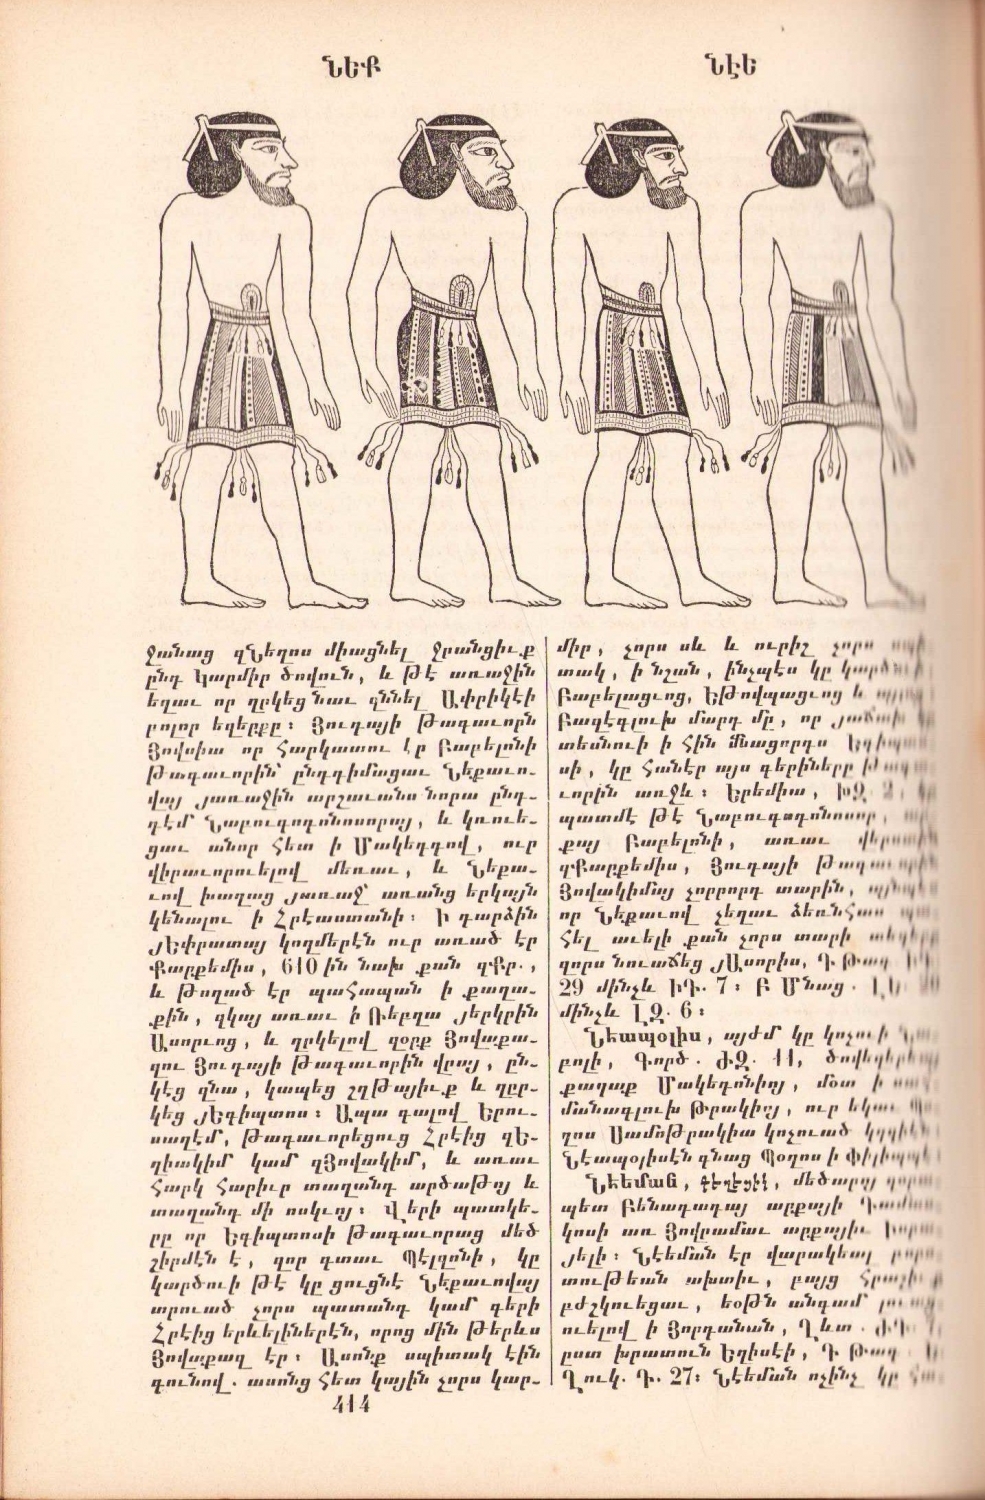 ՆԵՔ
ՆԷԵ
ջանաց զՆեղոս միացնել ջրանցիւք
ընդ Կարմիր ծովուն, և թէ առաջին
եղաւ որ ղրկեց նաւ զննել Ափրիկէի
բոլոր եղերքը։ Յուդայի թագաւորն
Յովսիա որ հարկատու էր Բաբելոնի
թագաւորին՝ ընդդիմացաւ Նեքաւո-
վայ յառաջին արշաւանս նորա ընդ-
դէմ Նաբուգոդոնոսորայ, և կռուե-
ցաւ անոր հետ ի Մակեդդով, ուր
վիրաւորուելով մեռաւ, և Նեքա-
ւով խաղաց յառաջ՝ առանց երկայն
կենալու ի Հրէաստանի։ Ի դարձին
յԵփրատայ կողմերէն ուր առած էր
Քարքեմիս, 610 ին նախ քան զՔր.,
և թողած էր պահապան ի քաղա-
քին, զկայ առաւ ի Ռեբղա յերկրին
Ասորւոց, և ղրկելով զօրք Յովաքա-
զու Յուդայի թագաւորին վրայ, ըն-
կէց զնա, կապեց շղթայիւք և ղըր-
կեց յԵգիպտոս։ Ապա գալով Երու-
սաղէմ, թագաւորեցուց Հրէից զԵ-
ղիակիմ կամ զՅովակիմ, և առաւ
հարկ հարիւր տաղանդ արծաթոյ և
տաղանդ մի ոսկւոյ։ Վերի պատկե-
րը որ Եգիպտոսի թագաւորաց մեծ
շիրմէն է, զոր գտաւ Պէլզոնի, կը
կարծուի թէ կը ցուցնէ Նեքաւովայ
տրուած չորս պատանդ կամ գերի
Հրէից երևելիներէն, որոց մին թերևս
Յովաքազ էր։ Ասոնք սպիտակ էին
գունով. ասոնց հետ կային չորս կար-
միր, չորս սև և ուրիշ չորս
տակ, ի նշան, ինչպէս կը
Բաբելացւոց, Եթովպացւոց և
Բազէգլուխ մարդ մը, որ
տեսնուի ի հին մնացորդս
սի, կը հանէր այս գերիները
ւորին առջև։ Երեմիա, ԽԶ. 2,
պատմէ թէ Նաբուգոդոնոսոր,
քայ Բաբելոնի, առաւ
զՔարքեմիս, Յուդայի
Յովակիմայ չորրորդ տարին,
որ Նեքաւով չեղաւ ձեռնհաս
հել աւելի քան չորս տարի
զորս նուաճեց յԱսորիս, Դ. Թագ.
29 մինչև ԻԴ. 7։ Բ Մնաց.
մինչև ԼԶ. 6։
Նեապօլիս, այժմ կը կոչուի
բոլի, Գործ. ԺԶ. 11,
քաղաք Մակեդոնիոյ, մօտ ի
մանագլուխ Թրակիոյ, ուր եկաւ
ղոս Սամոթրակիա կոչուած
Նէապօլիսէն գնաց Պօղոս ի
Նեեման, գեղեցիկ, մեծարոյ
պետ Բենադադայ արքայի
կոսի առ Յովրամաւ արքայիւ
յելի։ Նէեման էր վարակեալ
տութեան ախտիւ, բայց
բժշկուեցաւ, եօթն անգամ
ուելով ի Յորդանան, Ղևտ.
ըստ խրատուն Եղիսէի, Դ. Թագ.
Ղուկ. Դ. 27։ Նէեման ոչինչ կը
414